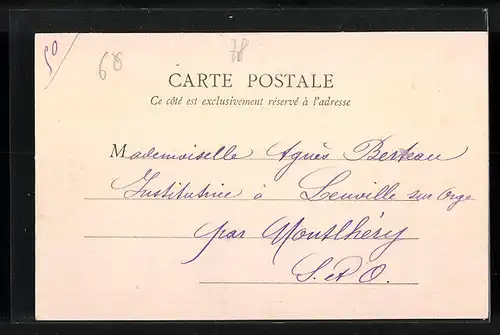 50
68
78
CARTE POSTALE
Ce côté est exclusivement réservé à l'adresse
Mademoiselle Agnès Berteau
Institutrice à Leuville sur Orge
par Montlhéry
S. et O.